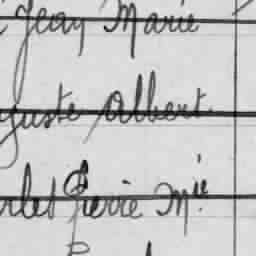 Jean Marie
guste Albert.
rles Pierre Mie